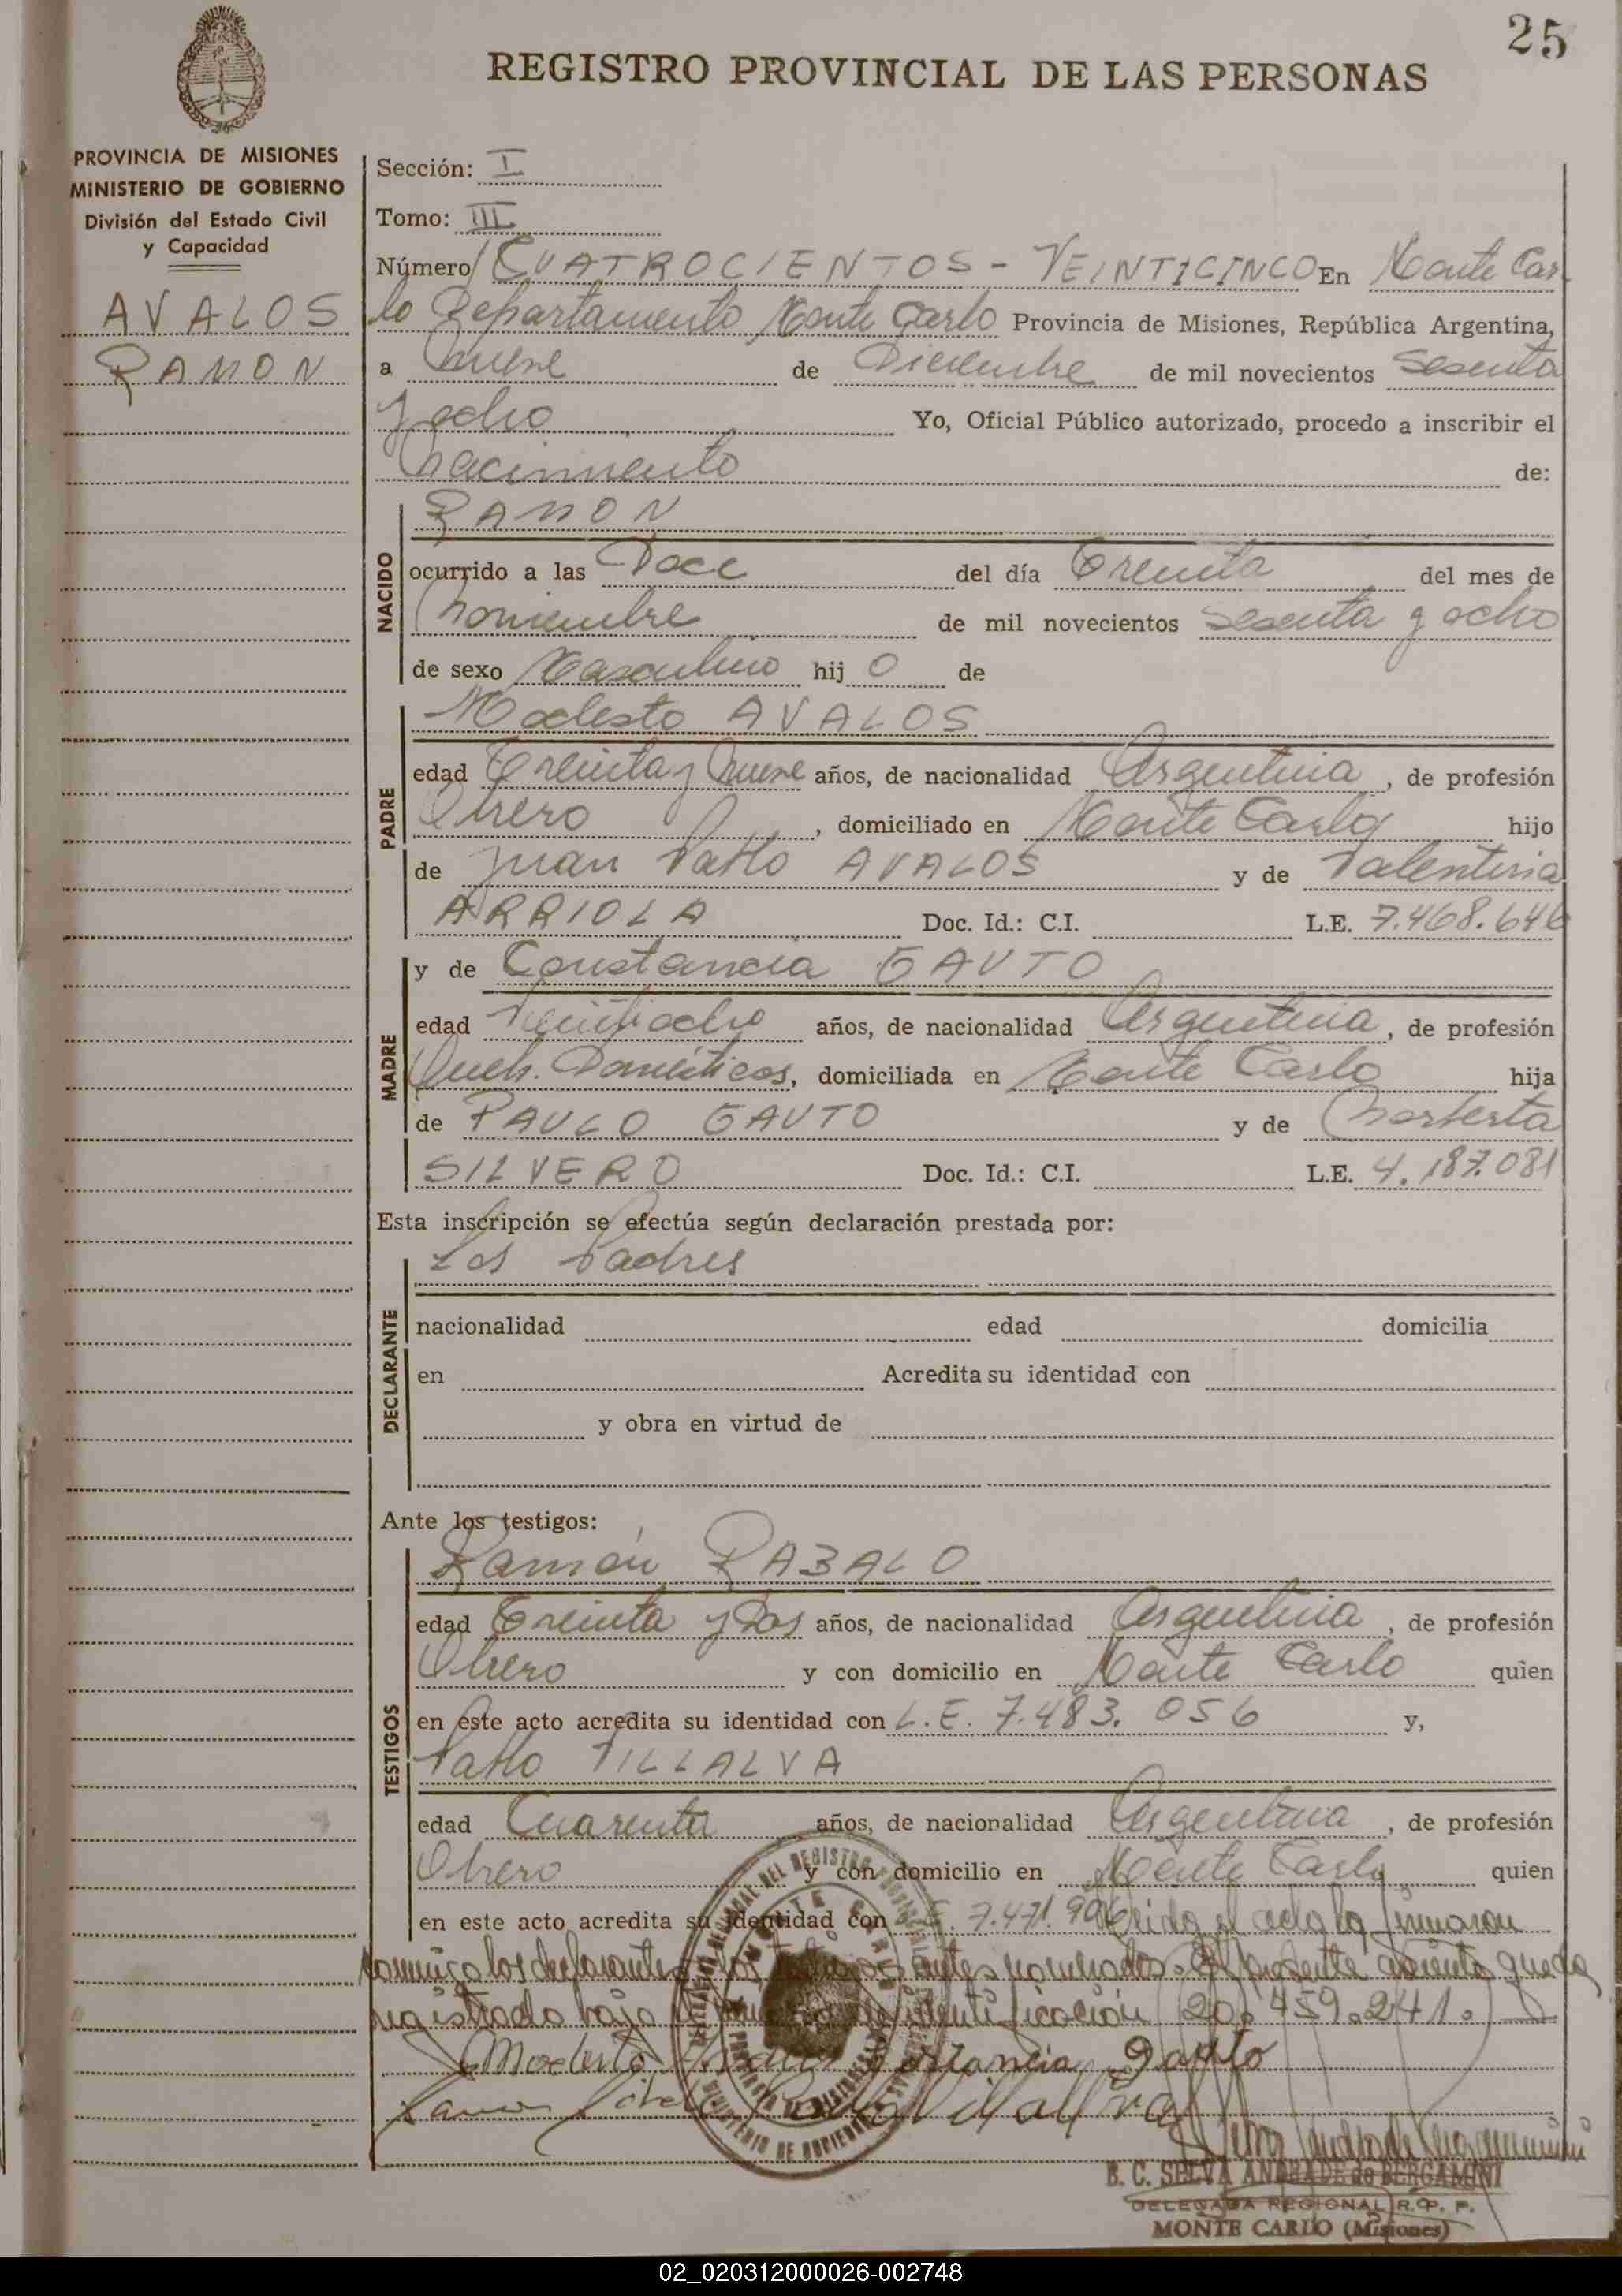 25
REGISTRO PROVINCIAL DE LAS PERSONAS
PROVINCIA DE MISIONES
MINISTERIO DE GOBIERNO
División del Estado Civil
y Capacidad
AVALOS
RAMON
Sección: I
Tomo: III
Número CUATROCIENTOS - VEINTICINCO En Monte Car
lo Departamento Monte Carlo Provincia de Misiones, República Argentina,
a Nueve de Diciembre de mil novecientos Sesenta
y ocho Yo, Oficial Público autorizado, procedo a inscribir el
Nacimiento de:
NACIDO
RAMON
ocurrido a las Doce del día Treinta del mes de
Noviembre de mil novecientos Sesenta y ocho
de sexo Masculino hij o de
PADRE
Modesto AVALOS
edad Treinta y Nueve años, de nacionalidad Argentina, de profesión
Obrero, domiciliado en Monte Carlo hijo
de Juan Pablo AVALOS y de Valentina
ARRIOLA Doc. Id.: C.I. L.E. 7.468.646
MADRE
y de Constancia GAUTO
edad Veintiocho años, de nacionalidad Argentina, de profesión
Queh. Domésticos, domiciliada en Monte Carlo hija
de PAULO GAUTO y de Norberta
SILVERO Doc. Id.: C.I. L.E. 4.187.081
Esta inscripción se efectúa según declaración prestada por:
DECLARANTE
Los Padres
nacionalidad edad domicilia
en Acredita su identidad con
y obra en virtud de
Ante los testigos:
TESTIGOS
Ramón RABALO
edad Treinta y Dos años, de nacionalidad Argentina, de profesión
Obrero y con domicilio en Monte Carlo quien
en este acto acredita su identidad con L.E. 7.483.056 y,
Pablo VILLALVA
edad Cuarenta años, de nacionalidad Argentina, de profesión
Obrero y con domicilio en Monte Carlo quien
en este acto acredita su identidad con L.E. 7.471.996 Leída el acta la firmaron
conmigo los declarantes y los testigos antes nombrados. El presente asiento queda
registrado bajo identificación 20.459.241.
Modesto Constancia Gauto
Ramon Villalva
B. C. SELVA ANDRADE de BERGAMINI
DELEGADA REGIONAL R. P. P.
MONTE CARLO (Misiones)
02_020312000026-002748